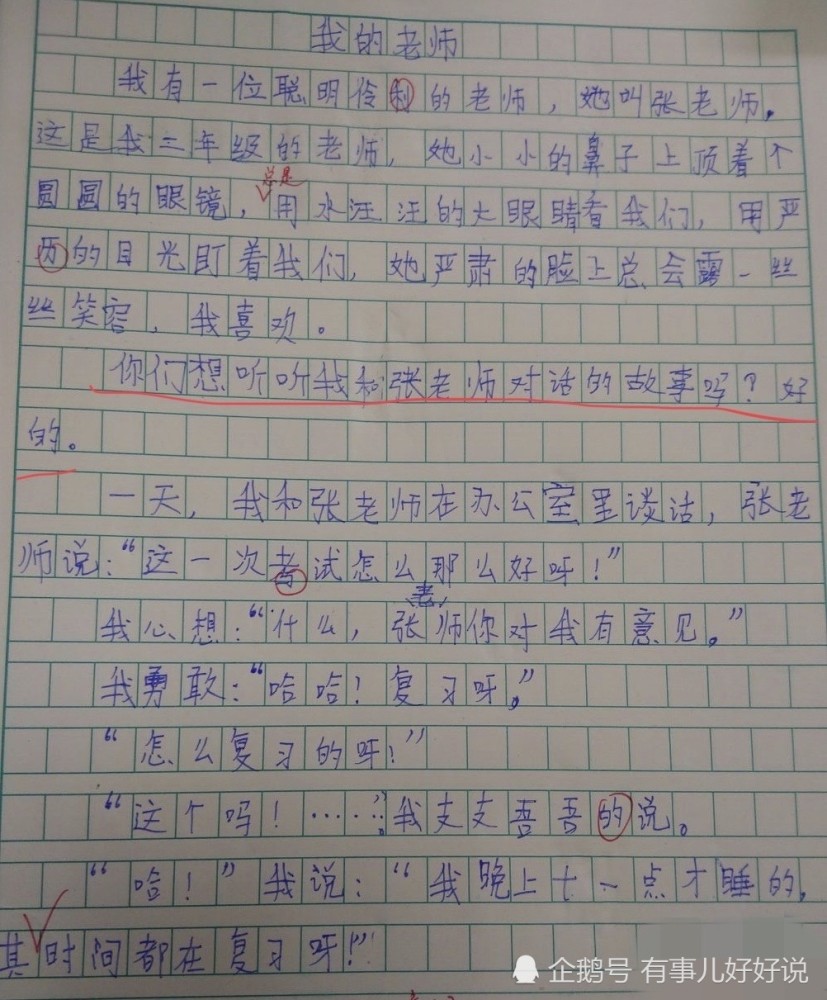 我的老师
我有一位聪明伶利的老师，她叫张老师。
这是我三年级的老师，她小小的鼻子上顶着个
圆圆的眼镜，总是用水汪汪的大眼睛看我们，用严
历的目光盯着我们，她严肃的脸上总会露一丝
丝笑容，我喜欢。
你们想听听我和张老师对话的故事吗？好
的。
一天，我和张老师在办公室里谈话，张老
师说：“这一次考试怎么那么好呀！”
我心想：“什么，张老师你对我有意见。”
我勇敢：“哈哈！复习呀。”
“怎么复习的呀！”
“这个吗！……”我支支吾吾的说。
“哈！”我说：“我晚上十一点才睡的，
其时间都在复习呀！”
企鹅号 有事儿好好说